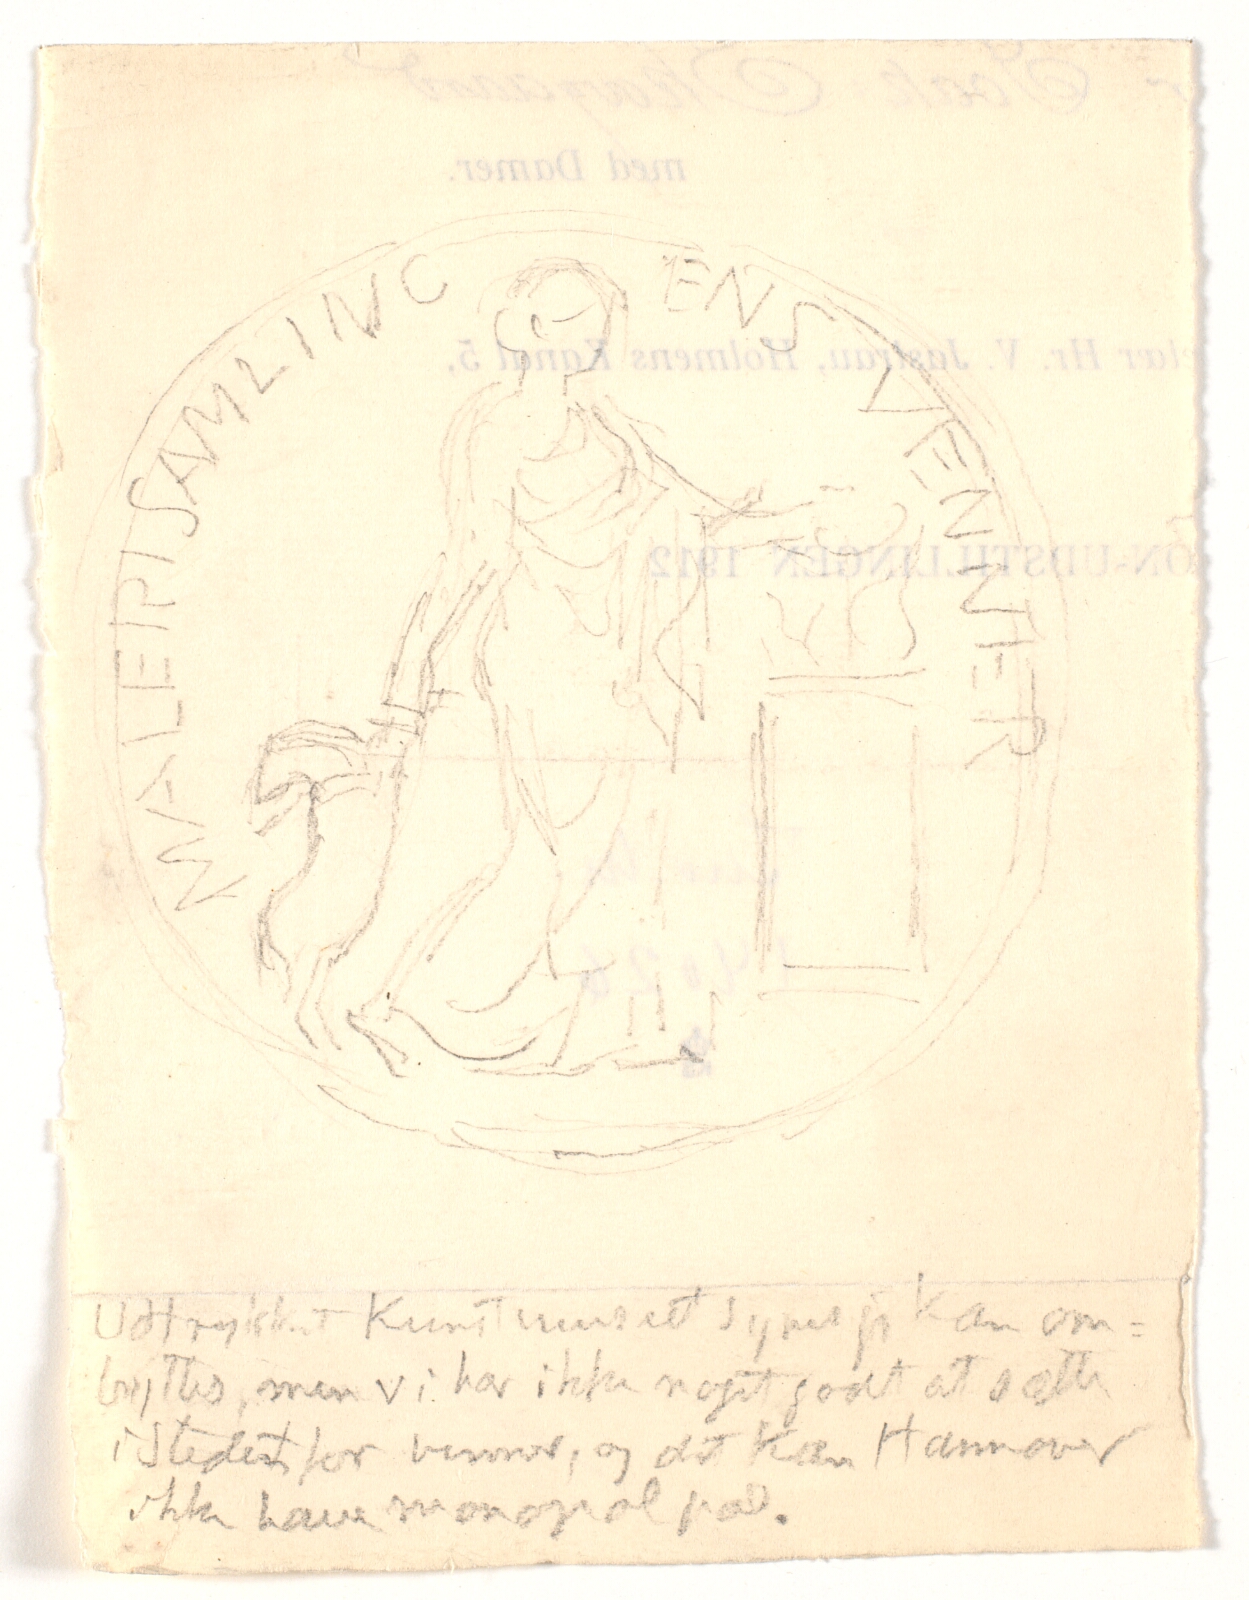 MALERISAMLINGENS VENNER
Udtrykket Kunstmuseet synes jeg kan om=
byttes, men vi har ikke noget godt at sætte
i Stedet for venner, og det kan Hannover
ikke have monopol på.
med Damer.
Hr. V. Jastrau, Holmens Kanal 5,
ON-UDSTILLINGEN 1912